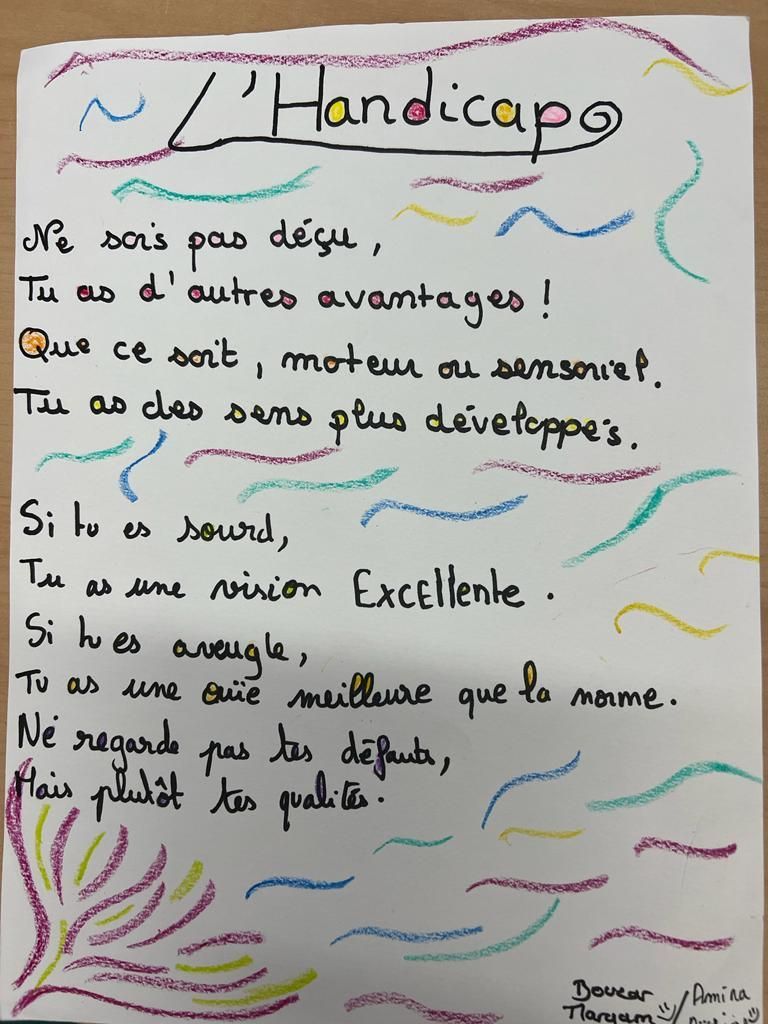 L'Handicap
Ne sois pas déçu,
Tu as d'autres avantages !
Que ce soit, moteur ou sensoriel.
Tu as des sens plus développés.
Si tu es sourd,
Tu as une vision Excellente.
Si tu es aveugle,
Tu as une ouïe meilleure que la norme.
Ne regarde pas tes défauts,
Mais plutôt tes qualités.
Boucar / Amina
Maryam